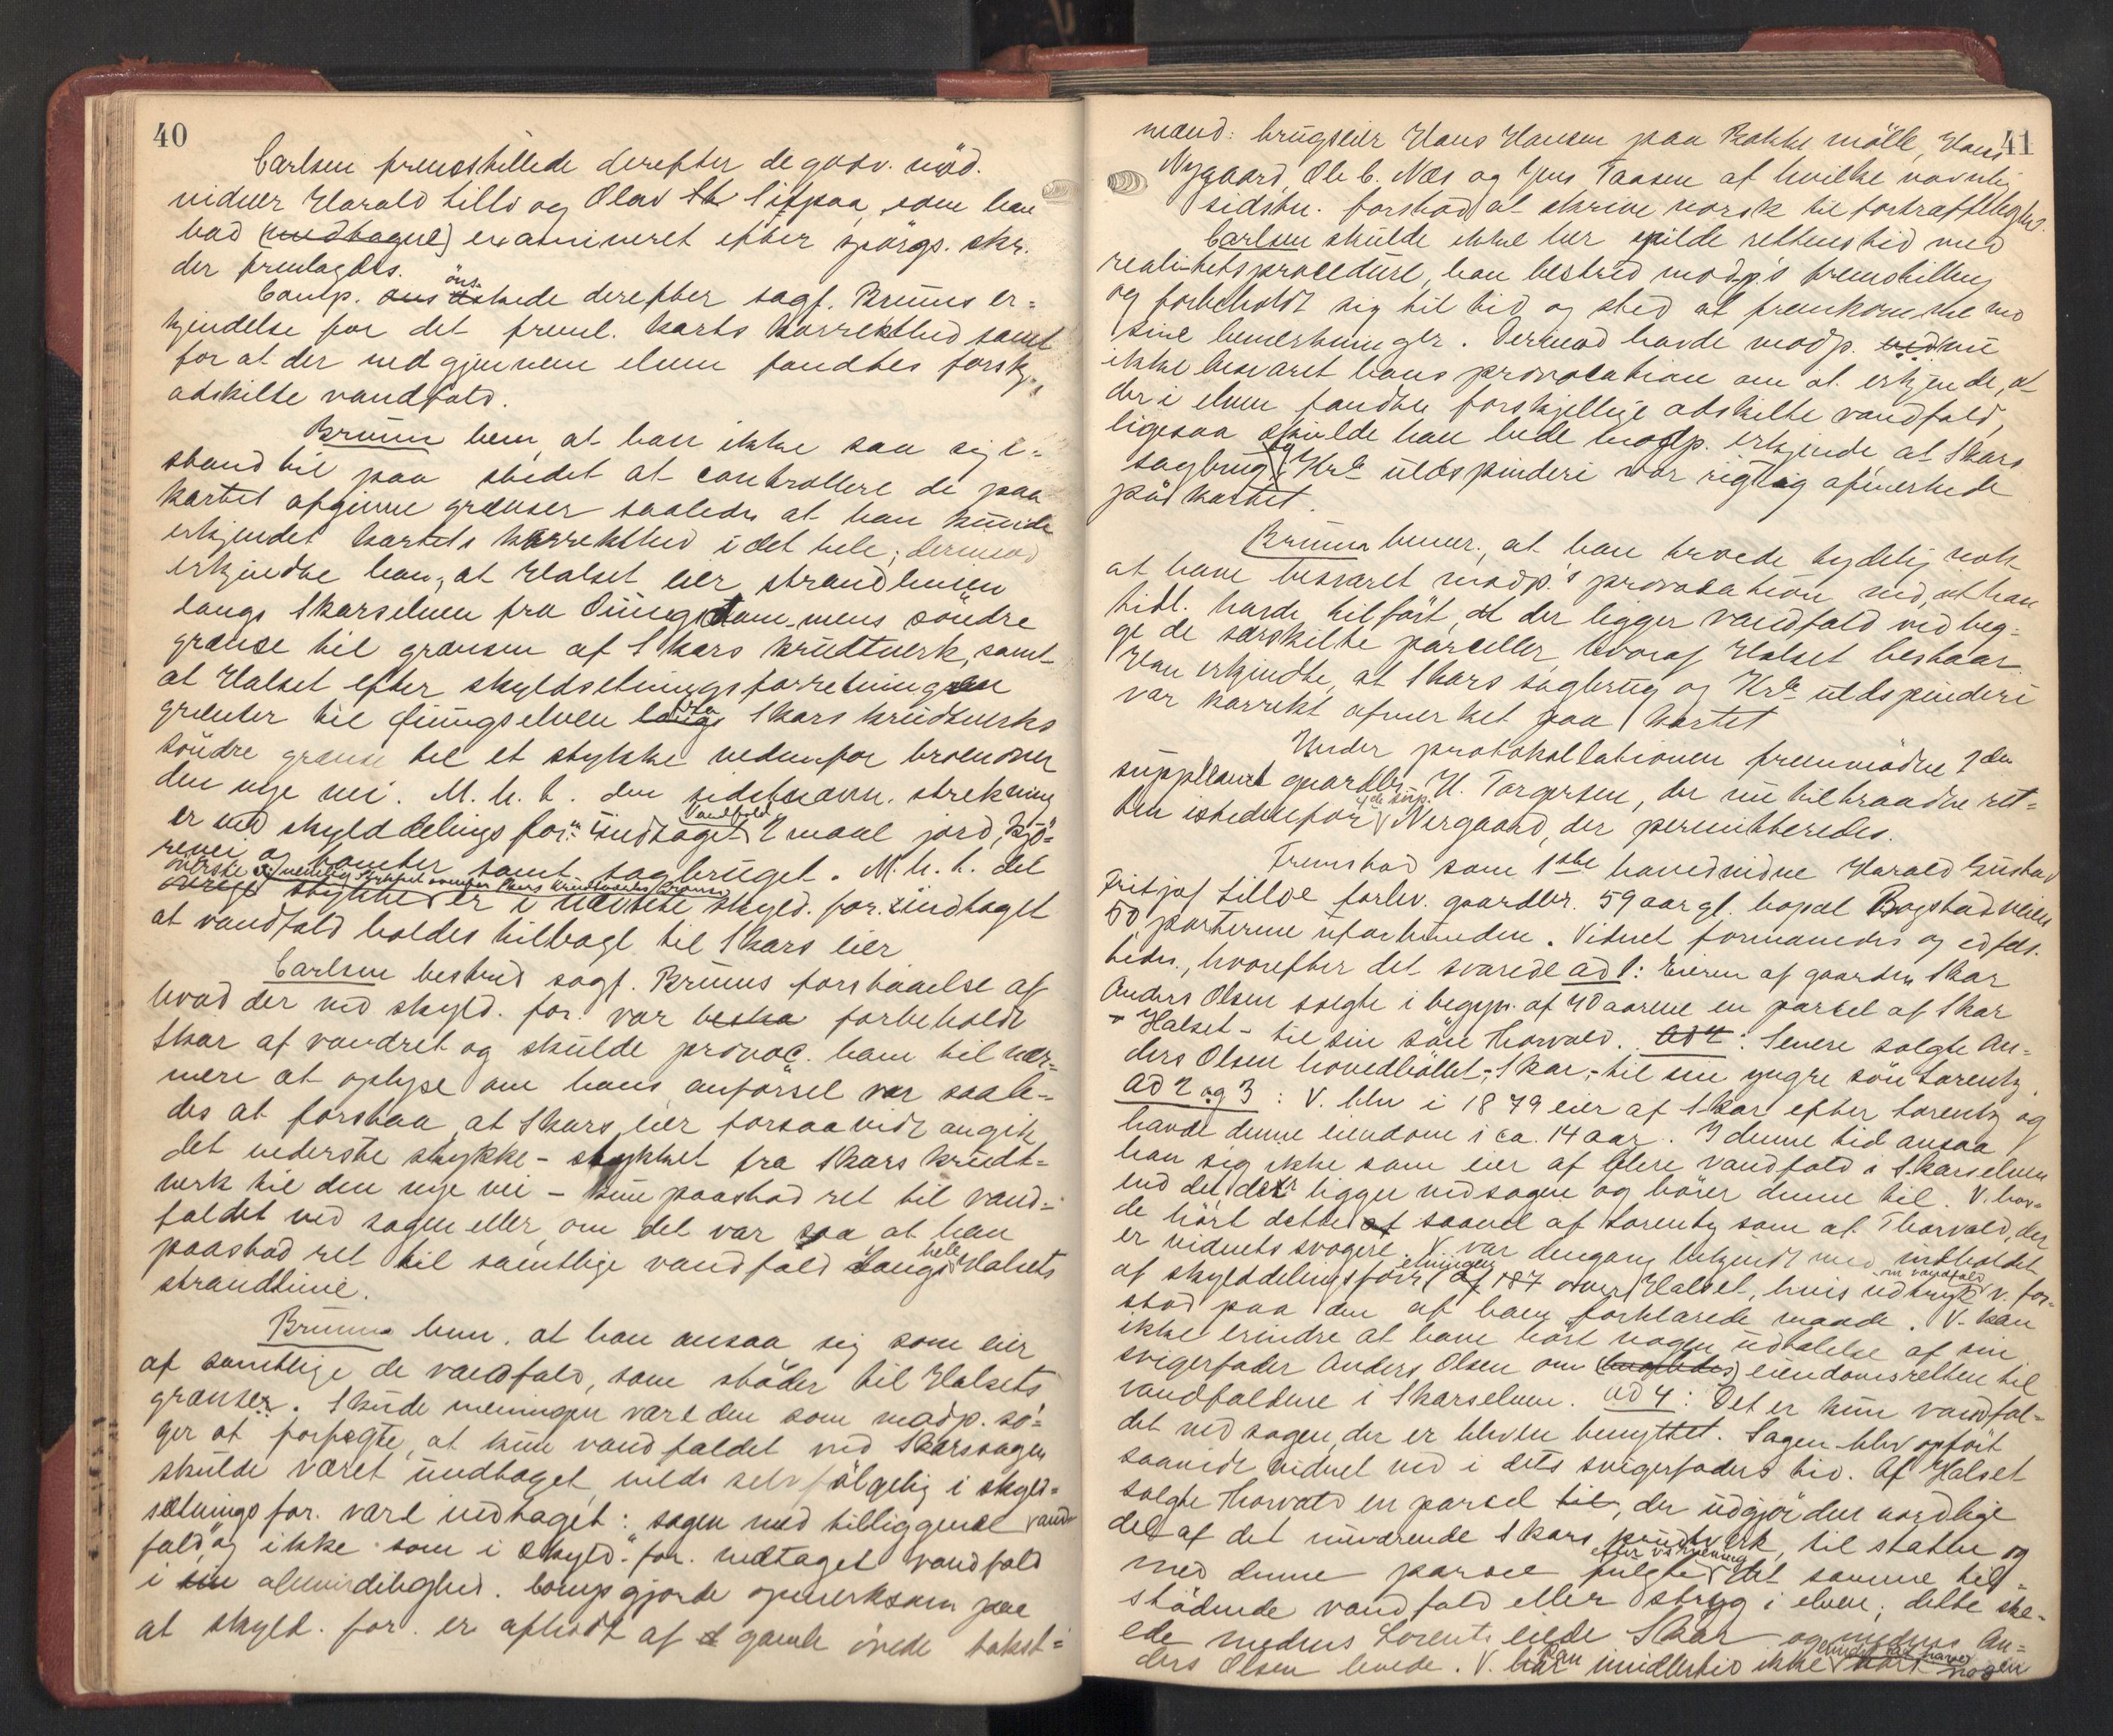 40
Carlsen fremstillede derefter de godv. möd.
vidner Harald Lilloe og Olav som han
bad examineret efter spörgs. skr.
der fremlagdes.
Comp. öns skede derefter sagf. Bruuns er=
kjendelse for det freml. karts korrekthed samt
for at der nedgjennem elven fandtes forskj.
adskilte vandfald.
Bruun bem. at han ikke saa sig i=
stand til paa stedet at controllere de paa
kartet afgivne grænser saaledes at han kunde
erkjendet kartets korrekthed i det hele; derimod
erkjendte han, at Halset eier strandlinien
langs Skarselven fra söndre
grænse til grænsen af Skars krudtverk, samt
at Halset efter skyldsetningsforretningen
grænter til elven fra Skars krudtverks
söndre grænse til et stykke nedenfor broen over
den nye vei. M. h. t. den sidstnævn. strekning
er ved skylddelings for. undtaget Vandfald 2 maal jord, kjö=
revei og tomter samt sagbruget. M. h. t. det
överste stykke er i nævnte skyld. for. undtaget
at vandfald holdes tilbage til Skars eier
Carlsen bestred sagf. Bruuns forstaaelse af
hvad der ved skyld. for. var beska forbeholdt
Skar af vandret og skulde provoc. ham til nær=
mere at oplyse om hans anförsel var saale=
des at forstaa, at Skars eier forsaavidt angik
det nederste stykke - stykket fra Skars krudt=
verk til den nye vei - kun paastod ret til vand=
faldet ved sagen eller om det var saa at han
paastod ret til samtlige vandfald langs hele Halsets
strandlinie.
Bruun bem. at han ansaa sig som eier
af samtlige de vandfald, som stöder til Halsets
grænser. Skulde meningen være den som modp. sö=
ger at forfegte, at kun vandfaldet ved Skarssagen
skulde været undtaget, vilde selvfölgelig i skyld=
sætnings for. vært indtaget: "sagen med tilliggende vand=
fald" og ikke som i skyld. for. undtaget vandfald
i sin almindelighed. Comp. gjorde opmerksom paa
at skyld. for. er afholdt af gamle övede takst=
41
mænd: brugseier Hans Hansen paa Bakke mölle, Hans
Nygaard, Ole C. Næs og Jens Taasen af hvilke navnlig
sidstn. forstod at skrive norsk til fortræffelighed.
Carlsen skulde ikke her spilde rettens tid med
realitetsprocedure, han bestred modp.'s fremstilling
og forbeholdt sig til tid og sted at fremkomme med
sine bemerkninger. Derimod havde modp. endnu
ikke besvaret hans provocation om at erkjende, at
der i elven fandtes forskjellige adskilte vandfald,
ligesaa skulde han bede modp. erkjende at Skars
sagbrug og Kra uldspinderi var rigtig afmerkede
på kartet.
Bruun bemer., at han troede tydelig nok
at have besvaret modp.'s provocation ved, at han
tidl. havde tilfört, at der ligger vandfald ved beg=
ge de særskilte parceller, hvoraf Halset bestaar
Han erkjendte, at Skars sagbrug og Kra uldspinderi
var korrekt afmerket paa kartet
Under protokollationen fremmödte 1ste
suppleant gaardbr. H. Torgersen, der nu tiltraadte ret=
ten istedetfor 4de sup. Nergaard, der permitteredes.
Fremstod som 1ste hovedvidne Harald Gustav
Fritjof Lilloe forhv. gaardbr. 59 aar gl. bopæl Bogstadveien
50, parterne uforbunden. Vidnet formanedes og edfæs=
tedes, hvorefter det svarede ad 1: Eieren af gaarden Skar
Anders Olsen solgte i begyn. af 70 aarene en parcel af Skar
- Halset - til sin sön Thorvald. ad 2: Senere solgte An=
ders Olsen hovedböllet - Skar - til sin yngre sön Lorentz.
ad 2 og 3: V. blev i 1879 eier af Skar efter Lorentz og
havde denne eiendom i ca. 14 aar. I denne tid ansaa
han sig ikke som eier af flere vandfald i Skarselven
end det, der ligger ved sagen og hörer denne til. V. hav=
de hört dette saavel af Lorentz som af Thorvald, der
er vidnets svogere. V. var dengang bekjendt med indholdet
af skylddelingsforretningen af 187 over Halset, hvis udtryk om vandfald v. for=
stod paa den af ham forklarede maade. V. kan
ikke erindre at have hört nogen udtalelse af sin
svigerfader Anders Olsen om eiendomsretten til
vandfaldene i Skarselven. ad 4: Det er kun vandfal=
det ved sagen, der er bleven benyttet. Sagen blev opfört
saavidt vidnet ved i dets svigerfaders tid. Af Halset
solgte Thorvald en parsel til, der udgjör den nordlige
del af det nuværende Skars krudtverk, til staten og
med denne parsel fulgte efter v's mening det samme til=
stödende vandfald eller stryg i elven; dette ske=
ede medens Lorents eiede Skar og medens An=
ders Olsen levede. V. kan imidlertid ikke erindre at have hört nogen